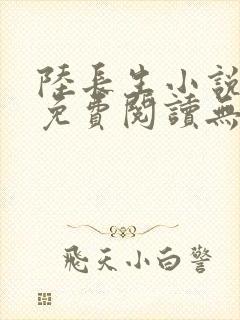 陸長生小說
免費閱讀無
飛天小白警